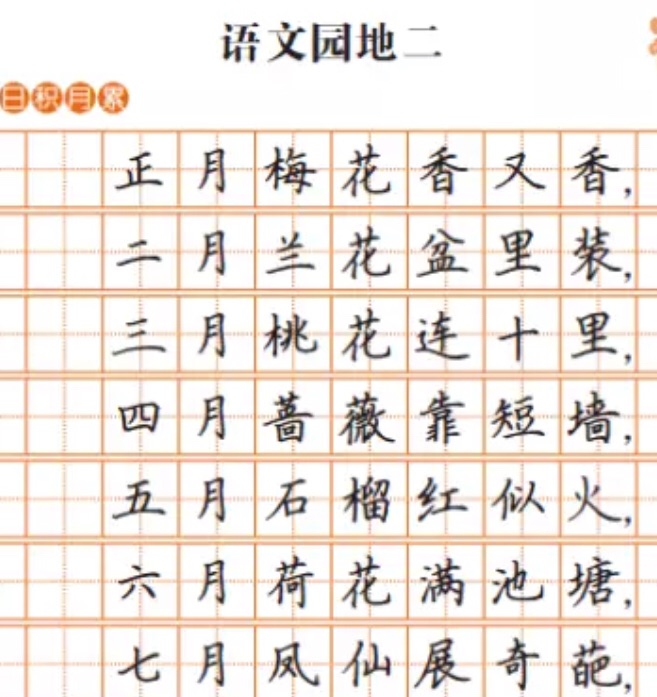 语文园地二
日积月累
正月梅花香又香,
二月兰花盆里装,
三月桃花连十里,
四月蔷薇靠短墙,
五月石榴红似火,
六月荷花满池塘,
七月凤仙展奇葩,